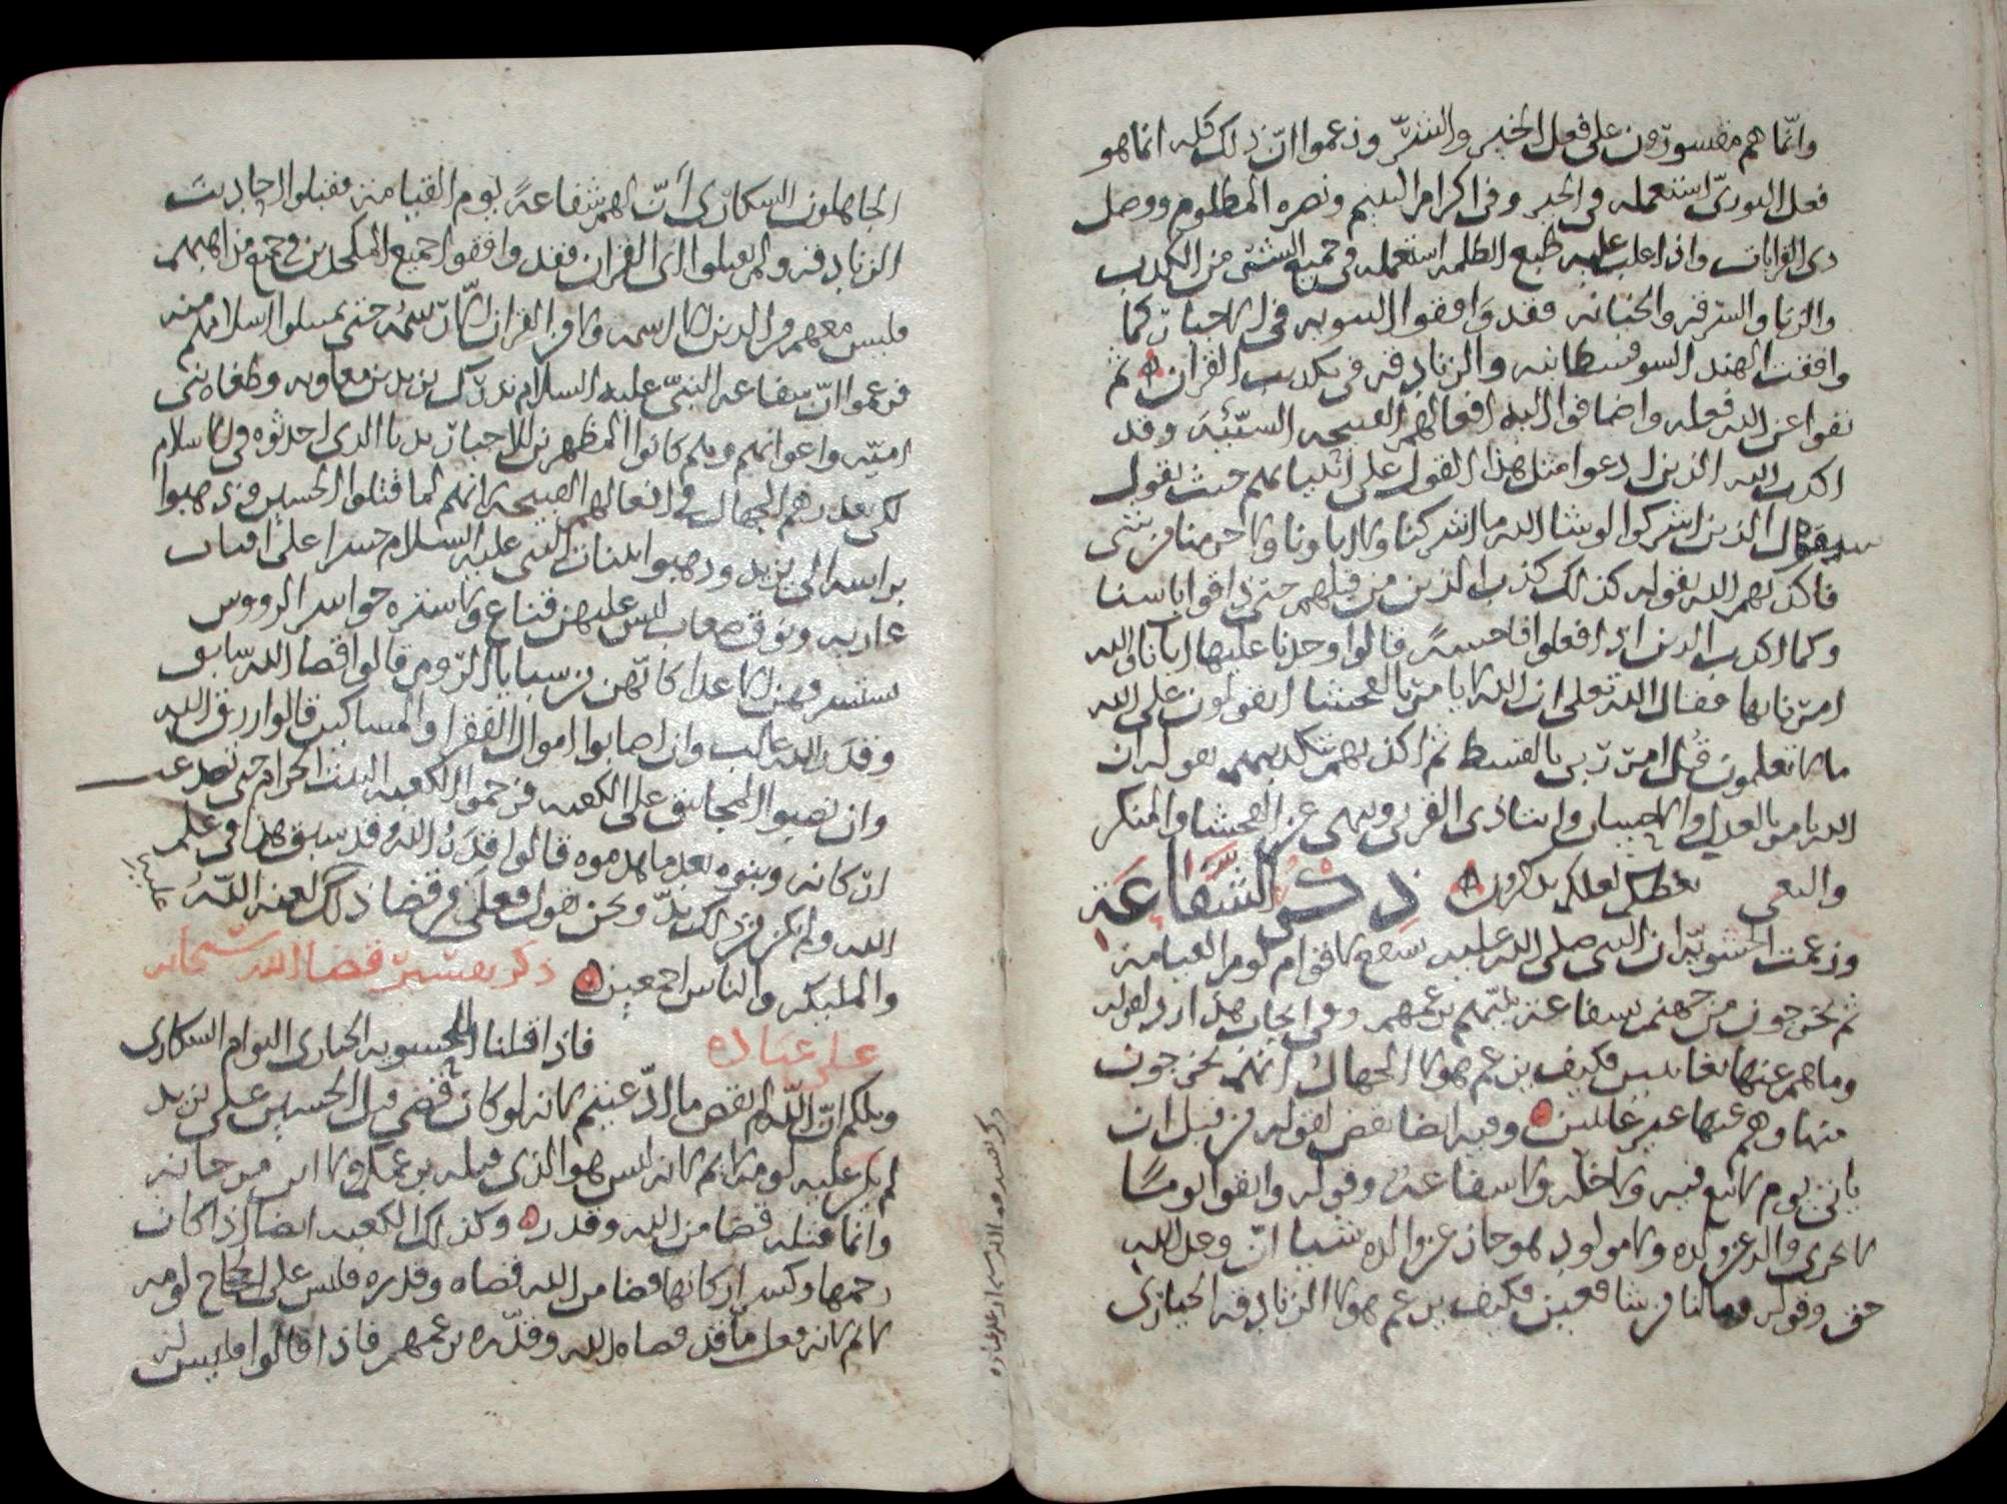 وانما هم مقسورون على فعل الخير والشر وزعموا ان ذلك كله انما هو
فعل النور استعمله في الخير وفي اكرام اليتيم ونصره المظلوم ووصل
ذى القرابات واذا اغلب عليه طبع الظلمه استعمله في جميع الشتى من الكذب
والزنا والسرقه والخيانه فقد وافقوا الثنويه في الاجبار كما
وافقت الهند السوفسطائيه والزنادقه في تكذيب القران ثم
نفوا عن الله فعله واضافوا اليه افعالهم القبيحه السيئه وقد
اكذب الله الذين ادعوا مثل هذا القول على انبيائهم حيث يقول
سيقول الذين اشركوا لو شا الله ما اشركنا ولا اباونا ولا حرمنا من شى
فاكذبهم الله بقوله كذلك كذب الذين من قبلهم حتى ذاقوا باسنا
وكما اكذب الذين اذا فعلوا فاحشة قالوا وجدنا عليها اباءنا والله
امرنا بها فقال الله تعلى ان الله لا يامر بالفحشا اتقولون على الله
ما لا تعلمون قل امر ربى بالقسط ثم اكذبهم بقوله ان
الله يامر بالعدل والاحسان وايتا ذى القربى وينهى عن الفحشا والمنكر
والبغى يعظكم لعلكم تذكرون ذكر الشفاعة
وزعمت الحشوية ان النبى صلى الله عليه يشفع لاقوام يوم القيامة
ثم يخرجون من جهنم بشفاعة نبيهم بزعمهم وفى ايجاب هذا رد لقوله
وما هم عنها بغائبين فكيف يزعم هولا الجهال انهم يخرجون
منها وهم عنها غير غائبين وفيه ايضا نقض لقوله من قبل ان
ياتى يوم لا بيع فيه ولا خلة ولا شفاعة وقوله واتقوا يوما
لا يجزى والد عن ولده ولا مولود هو جاز عن والده شيا ان وعد الله
حق وقوله فما لنا من شافعين فكيف يزعم هولا الزنادقه الحيارى
الجاهلون السكارى أن لهم شفاعة يوم القيامة فقبلوا احاديث
الزنادقه ولم يقبلوا اى القران فقد وافقوا جميع الملحدين في جميع مذاهبهم
فليس معهم من الدين الا اسمه ولا من القران الا رسمه
فزعموا ان شفاعة النبى عليه السلام تدرك يزيد بن معاويه وطغاه بنى
اميه واعوانهم وهم كانوا المظهرين للاجبار تدينا الذى احدثوه في الاسلام
لكى يعذرهم الجهال في افعالهم القبيحه لانهم لما قتلوا الحسين وذهبوا
براسه الى يزيد وذهبوا ببنات النبى عليه السلام حسرا على اقتاب
عاريه ونوق صعاب ليس عليهن قناع ولا ستره حواسر الرووس
كانهن من سبايا الروم قالوا قضا الله سابق
وقدر الله غالب وان اصابوا اموال الفقرا والمساكين قالوا رزق الله
وان نصبوا المجانيق على الكعبه فرجموا الكعبه البيت الحرام حتى تصدعت
اركانه وبنوه بعد ما هدموه قالوا قدر الله وقد سبق هذا في علم
الله ولم يكن من ذلك بد ونحن نقول فعلى من قضا ذلك لعنه الله
والمليكه والناس اجمعين ذكر تفسير قضا الله سبحانه
على عباده فاذا قلنا للحشويه الحيارى النوام السكارى
ويلكم ان الله لم يقض ما ادعيتم لانه لو كان قضى قتل الحسين على يزيد
لم يكن عليه لوم ولا اثم لانه ليس هو الذى قتله بزعمكم ولا ابن مرجانه
وانما قتله قضا من الله وقدره وكذلك الكعبه ايضا اذا كان
رجمها وكسر اركانها قضا من الله قضاه وقدره فليس على الحجاج لومه
لانه فعل ما قد قضاه الله وقدره بزعمهم فاذا قالوا ما ليس له